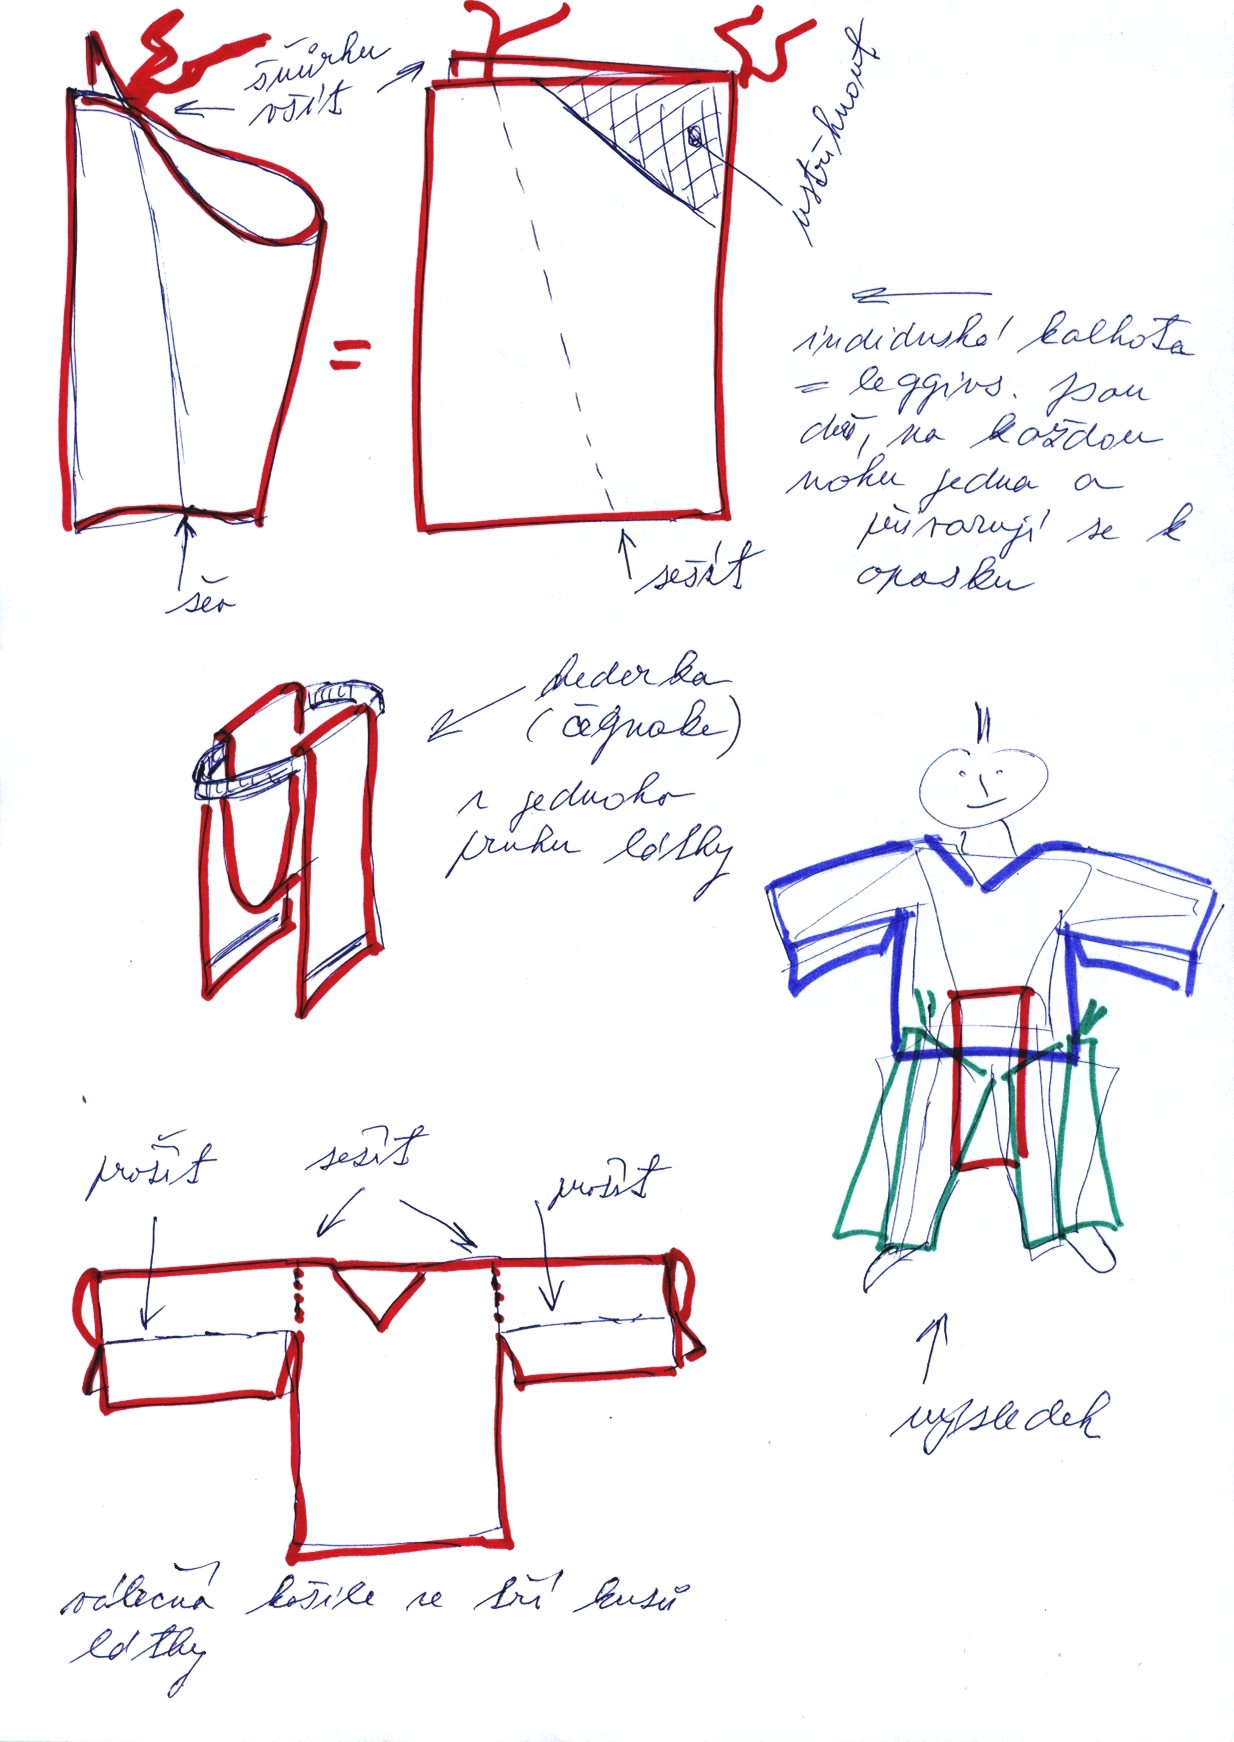 šňůrku
všít
ustřihnout
indiánská kalhota
= leggins. Jsou
dvě, na každou
nohu jedna a
přivazují se k
opasku
šev
sešít
bederka
(čegnake)
z jednoho
pruhu látky
prošít
sešít
prošít
výsledek
válečná košile ze tří kusů
látky